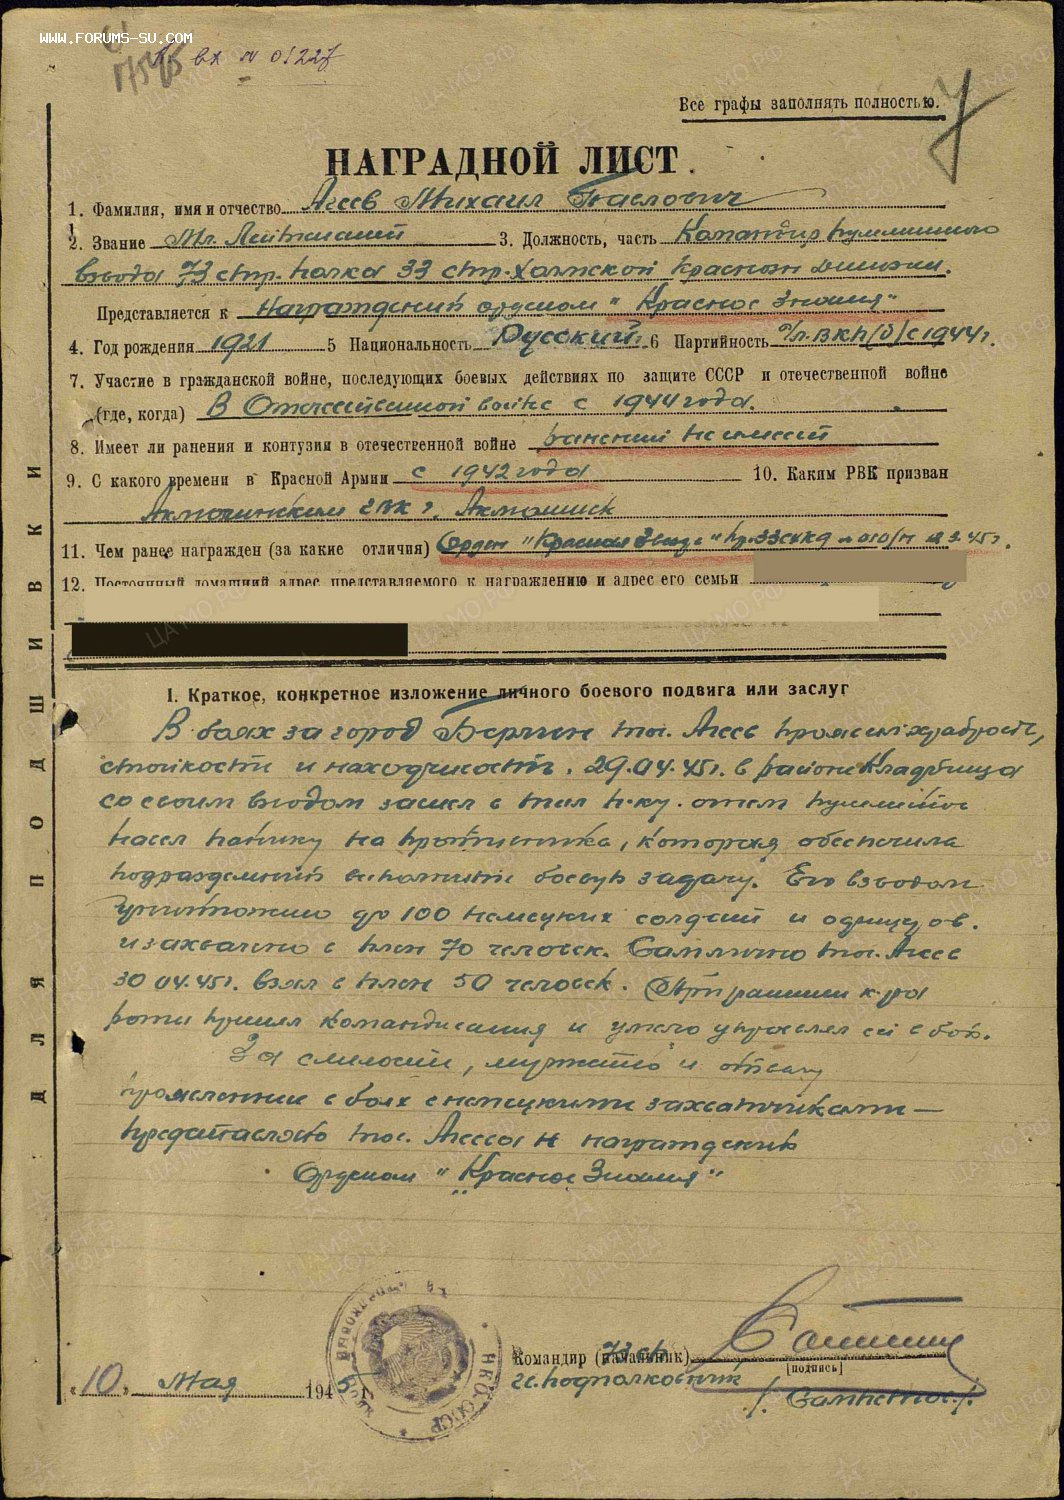 www.forums-su.com
вх № 01227
Все графы заполнять полностью.
НАГРАДНОЙ ЛИСТ.
1. Фамилия, имя и отчество Агеев Михаил Павлович
2. Звание Мл. Лейтенант 3. Должность, часть Командир пулеметного
взвода 73 стр. полка 33 стр. Холмской Красноз дивизии.
Представляется к награждений орденом "Красное Знамя"
4. Год рождения 1921 5 Национальность Русский. 6 Партийность ВКП(б) с 1944г.
7. Участие в гражданской войне, последующих боевых действиях по защите СССР и отечественной войне
(где, когда) В Отечественной войне с 1944 года.
8. Имеет ли ранения и контузии в отечественной войне ранений не имеет
9. С какого времени в Красной Армии с 1942 года 10. Каким РВК призван
Акмолинским ГВК г. Акмолинск
11. Чем ранее награжден (за какие отличия) Орден "Красная Звезда" пр. 33 010/н 45г.
12. Постоянный домашний адрес представляемого к награждению и адрес его семьи
ДЛЯ ПОДШИВКИ
I. Краткое, конкретное изложение личного боевого подвига или заслуг
В боях за город Берлин тов. Агеев проявил храбрость,
стойкость и находчивость. 29.04.45г. в районе Кладбища
со своим взводом зашел в тыл пр-ку. огнем пулеметов
навел панику на противника, которая обеспечила
подразделений выполнить боевую задачу. Его взводом
уничтожено до 100 немецких солдат и офицеров.
и захвачено в плен 70 человек. Самлично тов. Агеев
30.04.45г. взял в плен 50 человек. При ранении к-ра
роты принял командования и умело управлял ей в бою.
За смелость, мужество и отвагу
проявленные в боях с немецкими захватчиками —
представляю тов. Агеева к награждению
Орденом "Красное Знамя"
Командир (начальник) 73 сп
гв. подполковник
[подпись]
"10" Мая 1945 г.
НКО-СССР